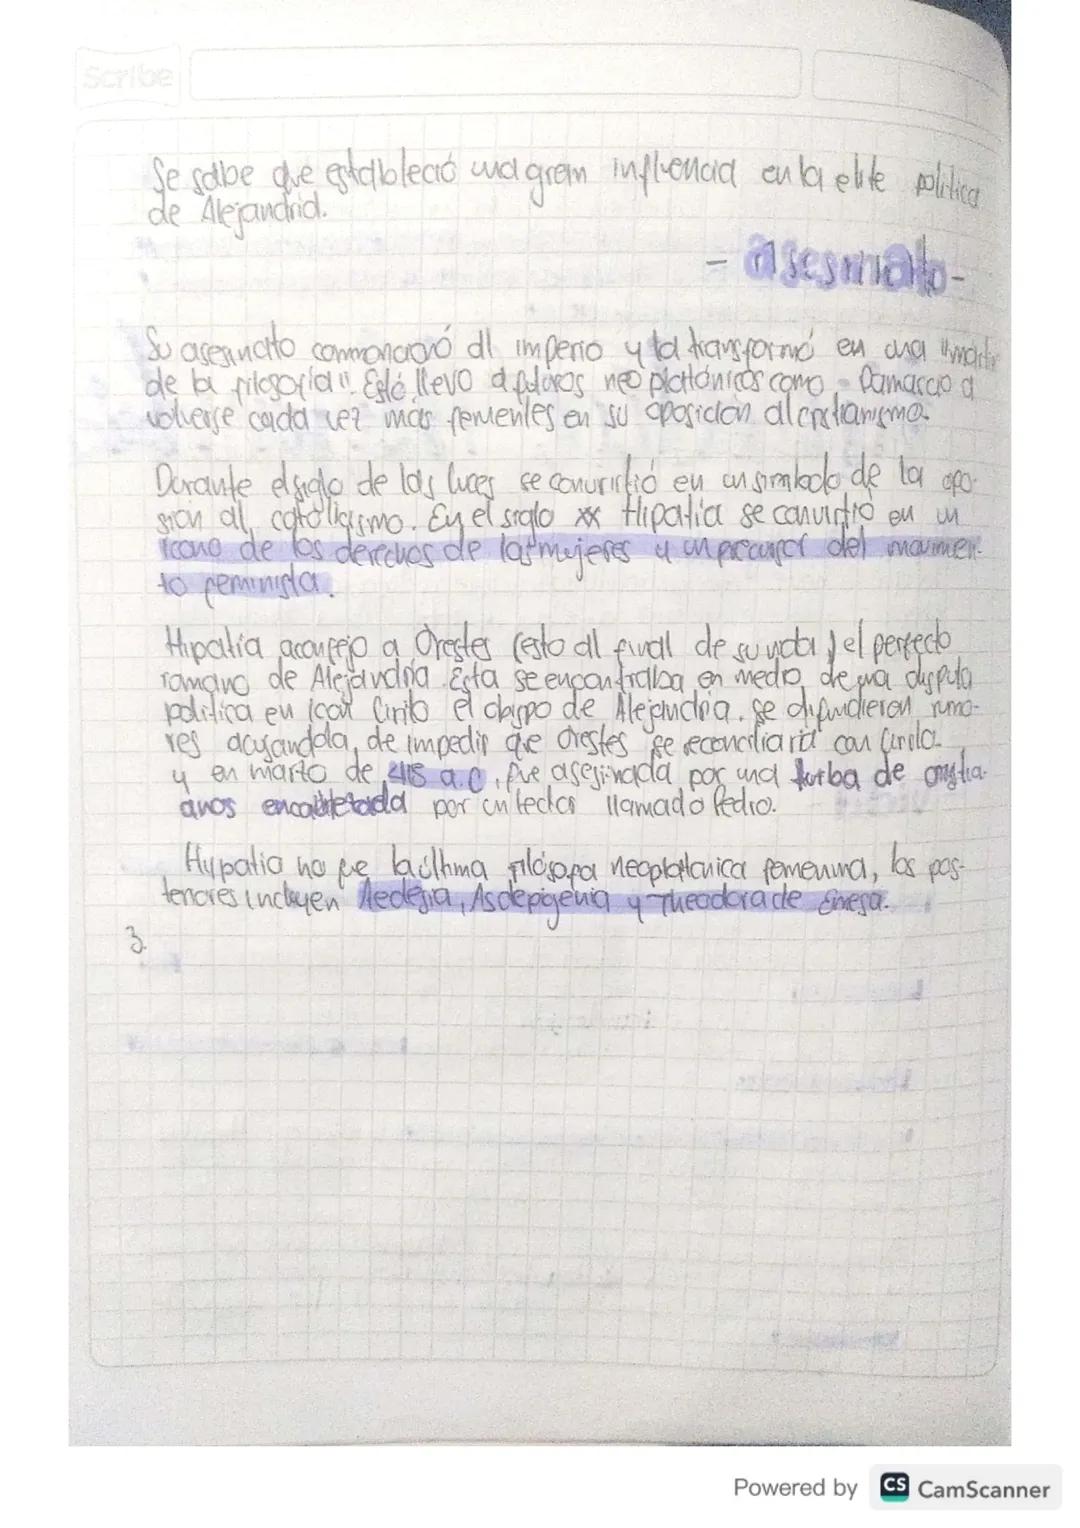 Scribe
Se sabe que estableció una gran influencia en la elite politica
de Alejandria.
- asesinato -
Su asesinato conmocionó al imperio y la transformó en una "martir
de la filosofía". Esto llevo a futuros neoplatónicos como Damascio a
volverse cada vez mas fervientes en su oposición al cristianismo.
Durante el siglo de las luces se convirtió en un simbolo de la opo-
sion al catolicismo. En el siglo xx Hipatia se convirtió en un
icono de los derechos de las mujeres y un precursor del movimien-
to feminista.
Hipatia aconsejo a Orestes (esto al final de su vida) el perfecto
romano de Alejandria. Esta se encontraba en medio de una disputa
politica en con Cirilo el obispo de Alejandria. Se difundieron rumo-
res acusandola, de impedir que Orestes se reconciliaria con Cirilo.
y en marzo de 415 a.C, fue asesinada por una turba de cristia-
anos encabletada por un lector llamado Pedro.
Hypatia no fue la última filósofa neoplatonica femenina, las pos-
teriores incluyen Aedesia, Asclepigenia y Theodora de Emesa.
3.
Powered by CS CamScanner